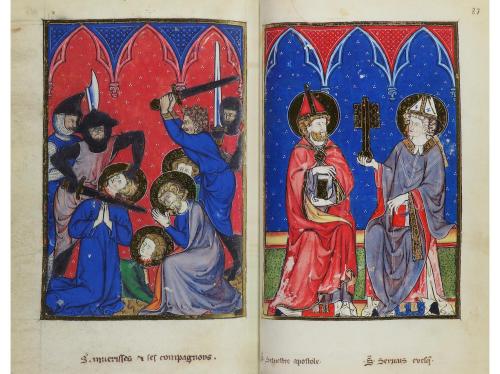 27
S. muerisses & ses compagnons.
S. Siluestre apostole.
S. Seruais euesq